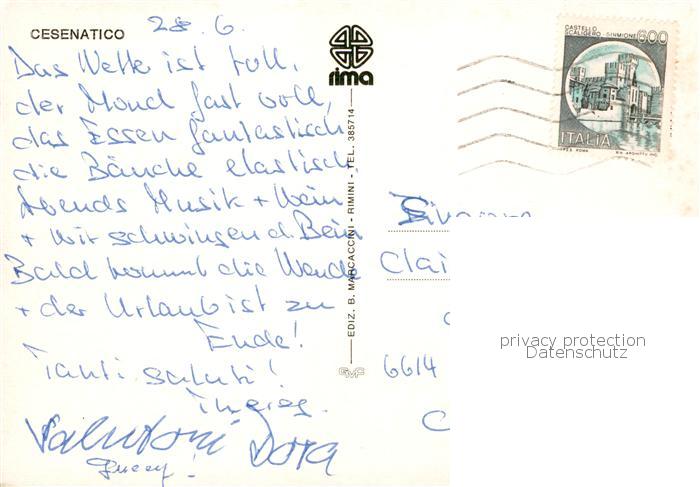 CESENATICO
28. 6.
Das Wetter ist toll,
der Mond fast voll,
das Essen fantastisch
die Bäuche elastisch
Abends Musik + Wein
+ wir schwingen d. Bein
Bald kommt die Wende
+ der Urlaub ist zu
Ende!
Tanti saluti!
Saluti Dora
rima
EDIZ. B. MARCACCINI - RIMINI - TEL. 385714
GMF
CASTELLO
SCALIGERO - SIRMIONE
600
ITALIA
Clai
6614
C
privacy protection
Datenschutz